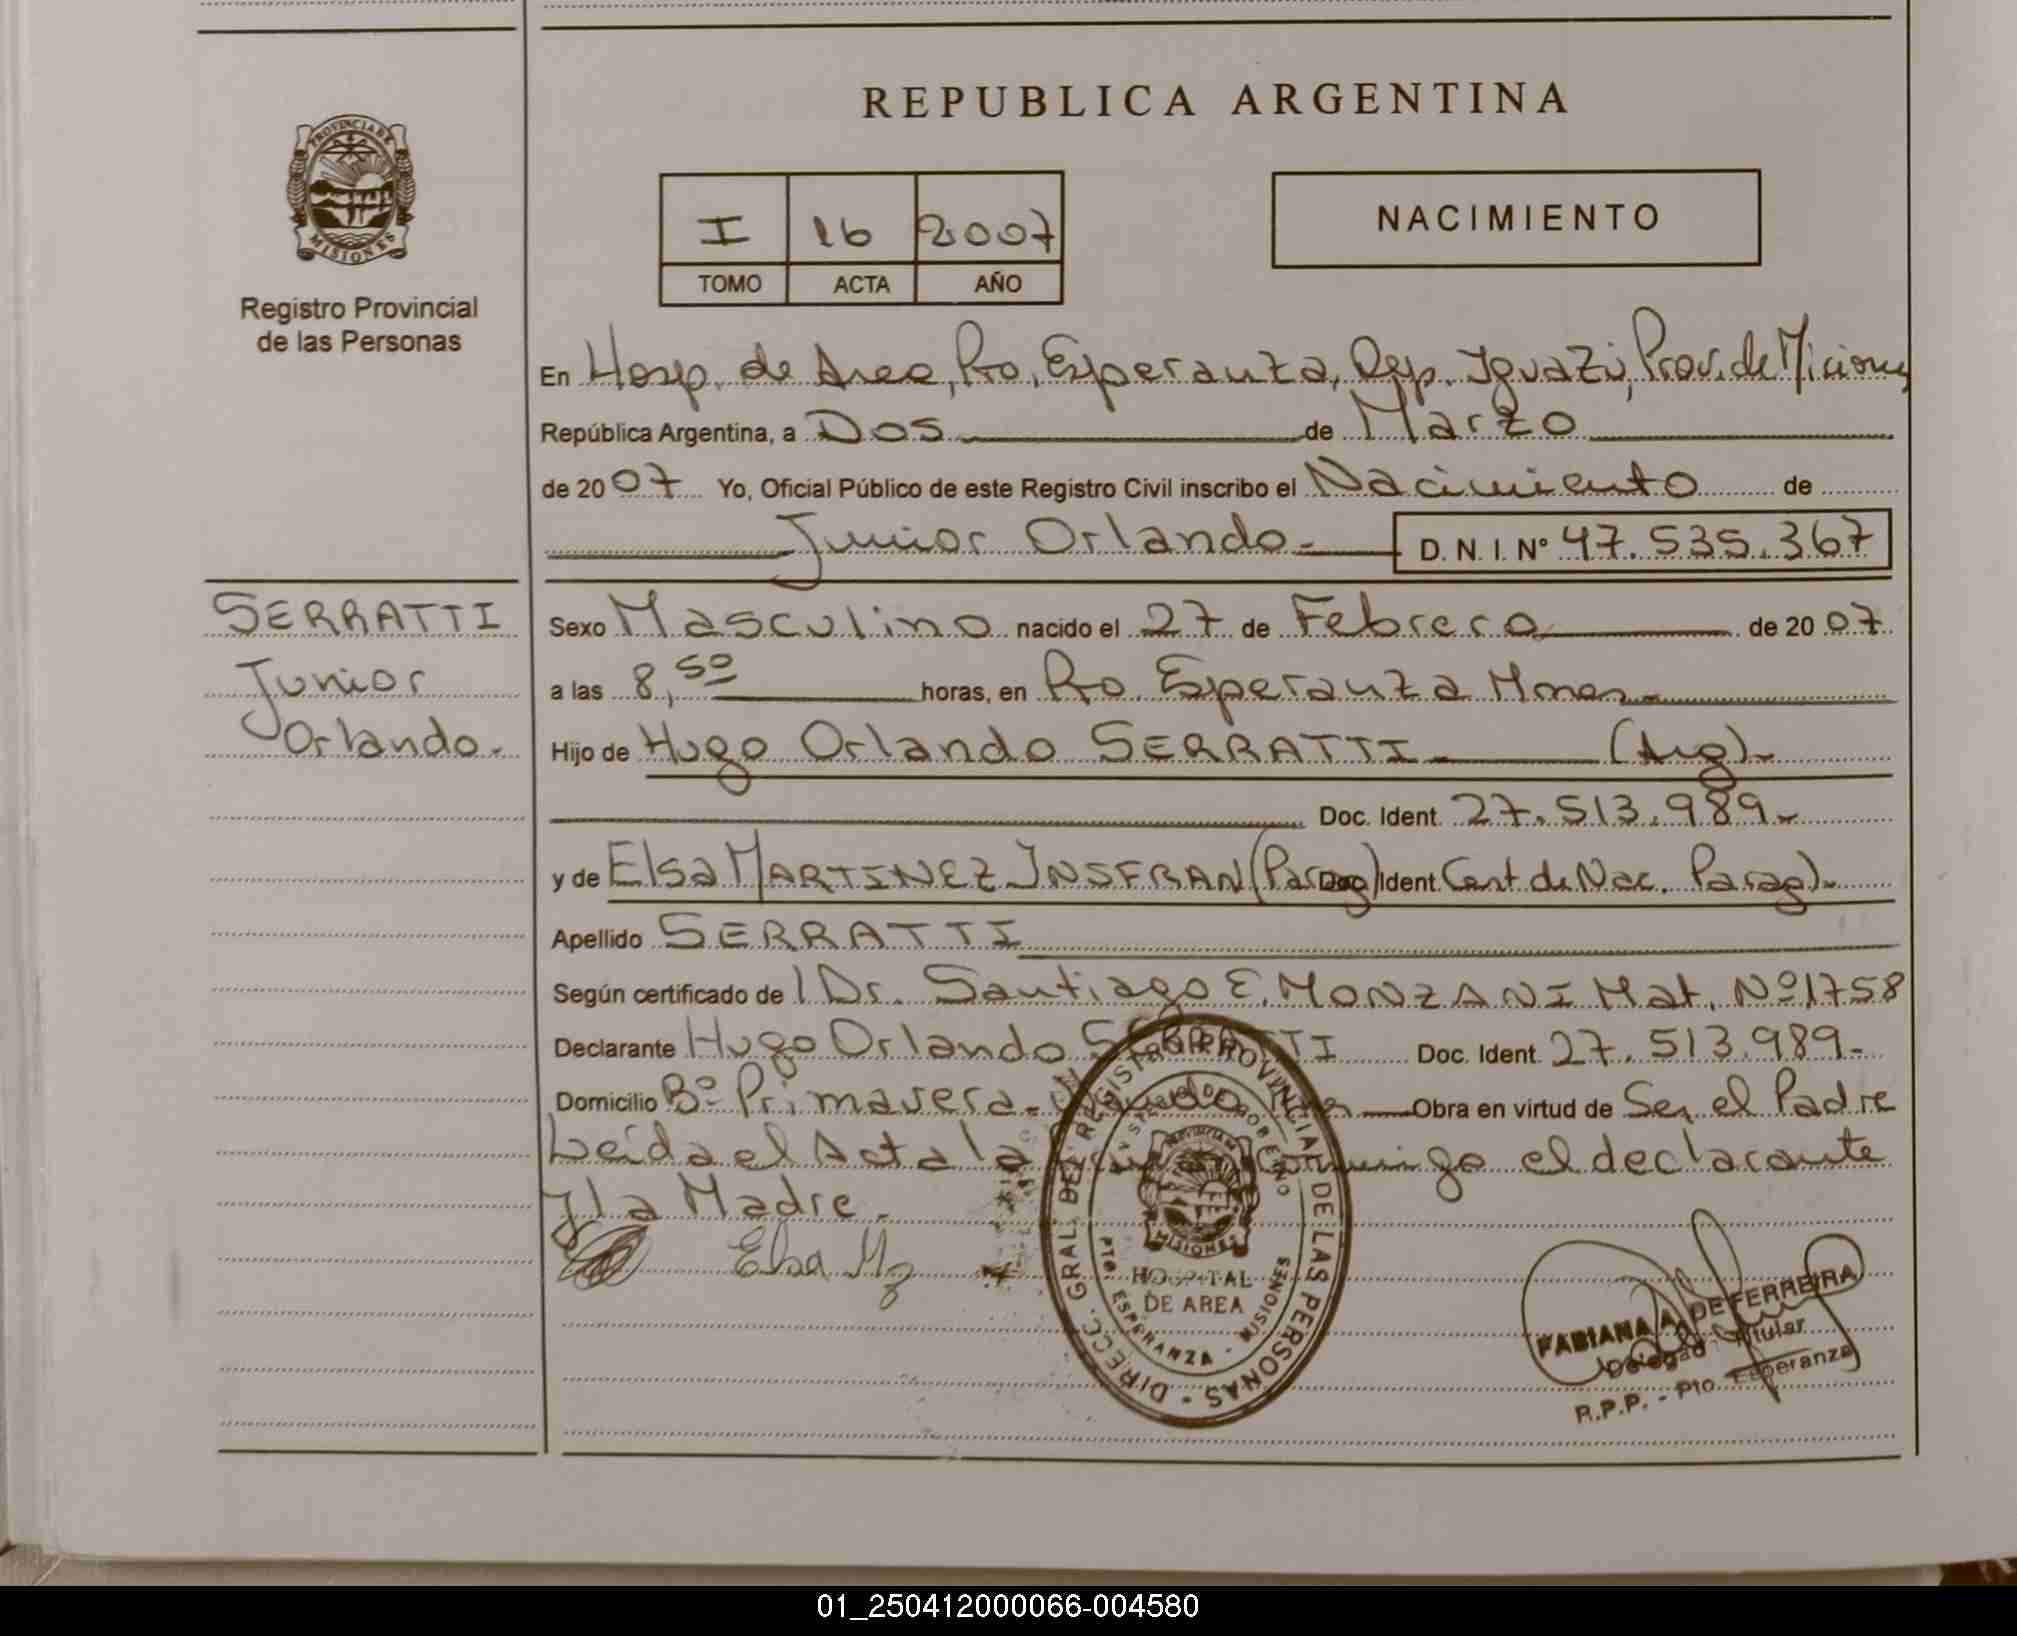 REPUBLICA ARGENTINA
PROVINCIA DE MISIONES
Registro Provincial
de las Personas
I 16 2007
TOMO ACTA AÑO
NACIMIENTO
En Hosp. de Area, Pto, Esperanza, Dep. Iguazú, Prov. de Miciones
República Argentina, a Dos de Marzo
de 2007 Yo, Oficial Público de este Registro Civil inscribo el Nacimiento de
Junior Orlando.- D. N. I. Nº 47.535.367
SERRATTI
Junior
Orlando.-
Sexo Masculino nacido el 27 de Febrero de 2007
a las 8,50 horas, en Pto Esperanza Mnes.-
Hijo de Hugo Orlando SERRATTI (Arg).-
Doc. Ident. 27.513.989.-
y de Elsa MARTINEZ INSFRAN (Parag) Doc. Ident. Cert. de Nac. Parag).-
Apellido SERRATTI
Según certificado de l Dr. Santiago E. MONZANI Mat. Nº 1758
Declarante Hugo Orlando SERRATTI Doc. Ident. 27.513.989.-
Domicilio Bº Primavera.- Mnes Obra en virtud de Ser el Padre
Leída el Acta la conmigo el declarante
y la Madre.-
Elsa Mz
DIRECC. GRAL. DEL REGISTRO PROVINCIAL DE LAS PERSONAS
MINISTERIO DE GOBIERNO
PROVINCIA DE MISIONES
HOSPITAL
DE AREA
PTO ESPERANZA - MISIONES
FABIANA A. DE FERREIRA
Delegada Titular
R.P.P. - Pto. Esperanza
01_250412000066-004580